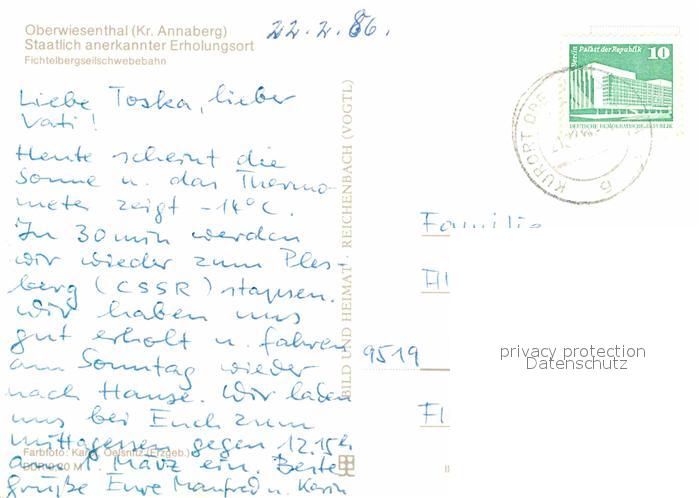 Oberwiesenthal (Kr. Annaberg)
Staatlich anerkannter Erholungsort
Fichtelbergseilschwebebahn
22.2.86.
Berlin Palast der Republik 10
DEUTSCHE DEMOKRATISCHE REPUBLIK
KURORT OBE
6
Liebe Toska, lieber
Vati!
Heute scheint die
Sonne u. das Thermo-
meter zeigt -14°C.
In 30 min werden
wir wieder zum Ples-
berg (CSSR) stapsen.
Wir haben uns
gut erholt u. fahren
am Sonntag wieder
nach Hause. Wir laden
uns bei Euch zum
Mittagessen gegen 12.15h
am 1. März ein. Beste
Grüße Eure Manfred u. Karin
BILD UND HEIMAT · REICHENBACH (VOGTL)
Farbfoto: Oelsnitz (Erzgeb.)
Familie
9519
privacy protection
Datenschutz